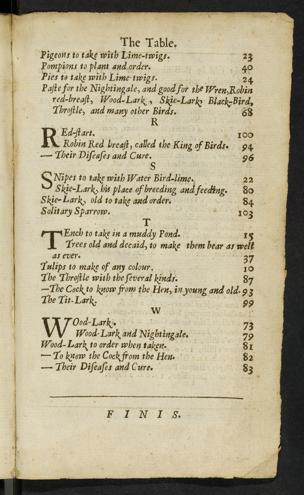 The Table.
Pigeons to take with Lime-twigs. 23
Pompions to plant and order. 40
Pies to take with Lime-twigs. 24
Paste for the Nightingale, and good for the Wren, Robin
red-breast, Wood-Lark, Skie-Lark, Black-Bird,
Throstle, and many other Birds. 68
R
REd-start. 100
Robin Red breast, called the King of Birds. 94
— Their Diseases and Cure. 96
S
SNipes to take with Water Bird-lime. 22
Skie-Lark, his place of breeding and feeding. 80
Skie-Lark, old to take and order. 84
Solitary Sparrow. 103
T
TEnch to take in a muddy Pond. 15
Trees old and decaid, to make them bear as well
as ever. 37
Tulips to make of any colour. 10
The Throstle with the several kinds. 87
—The Cock to know from the Hen, in young and old. 93
The Tit-Lark. 99
W
WOod-Lark. 73
Wood-Lark and Nightingale. 79
Wood-Lark to order when taken. 81
— To know the Cock from the Hen. 82
— Their Diseases and Cure. 83
FINIS.